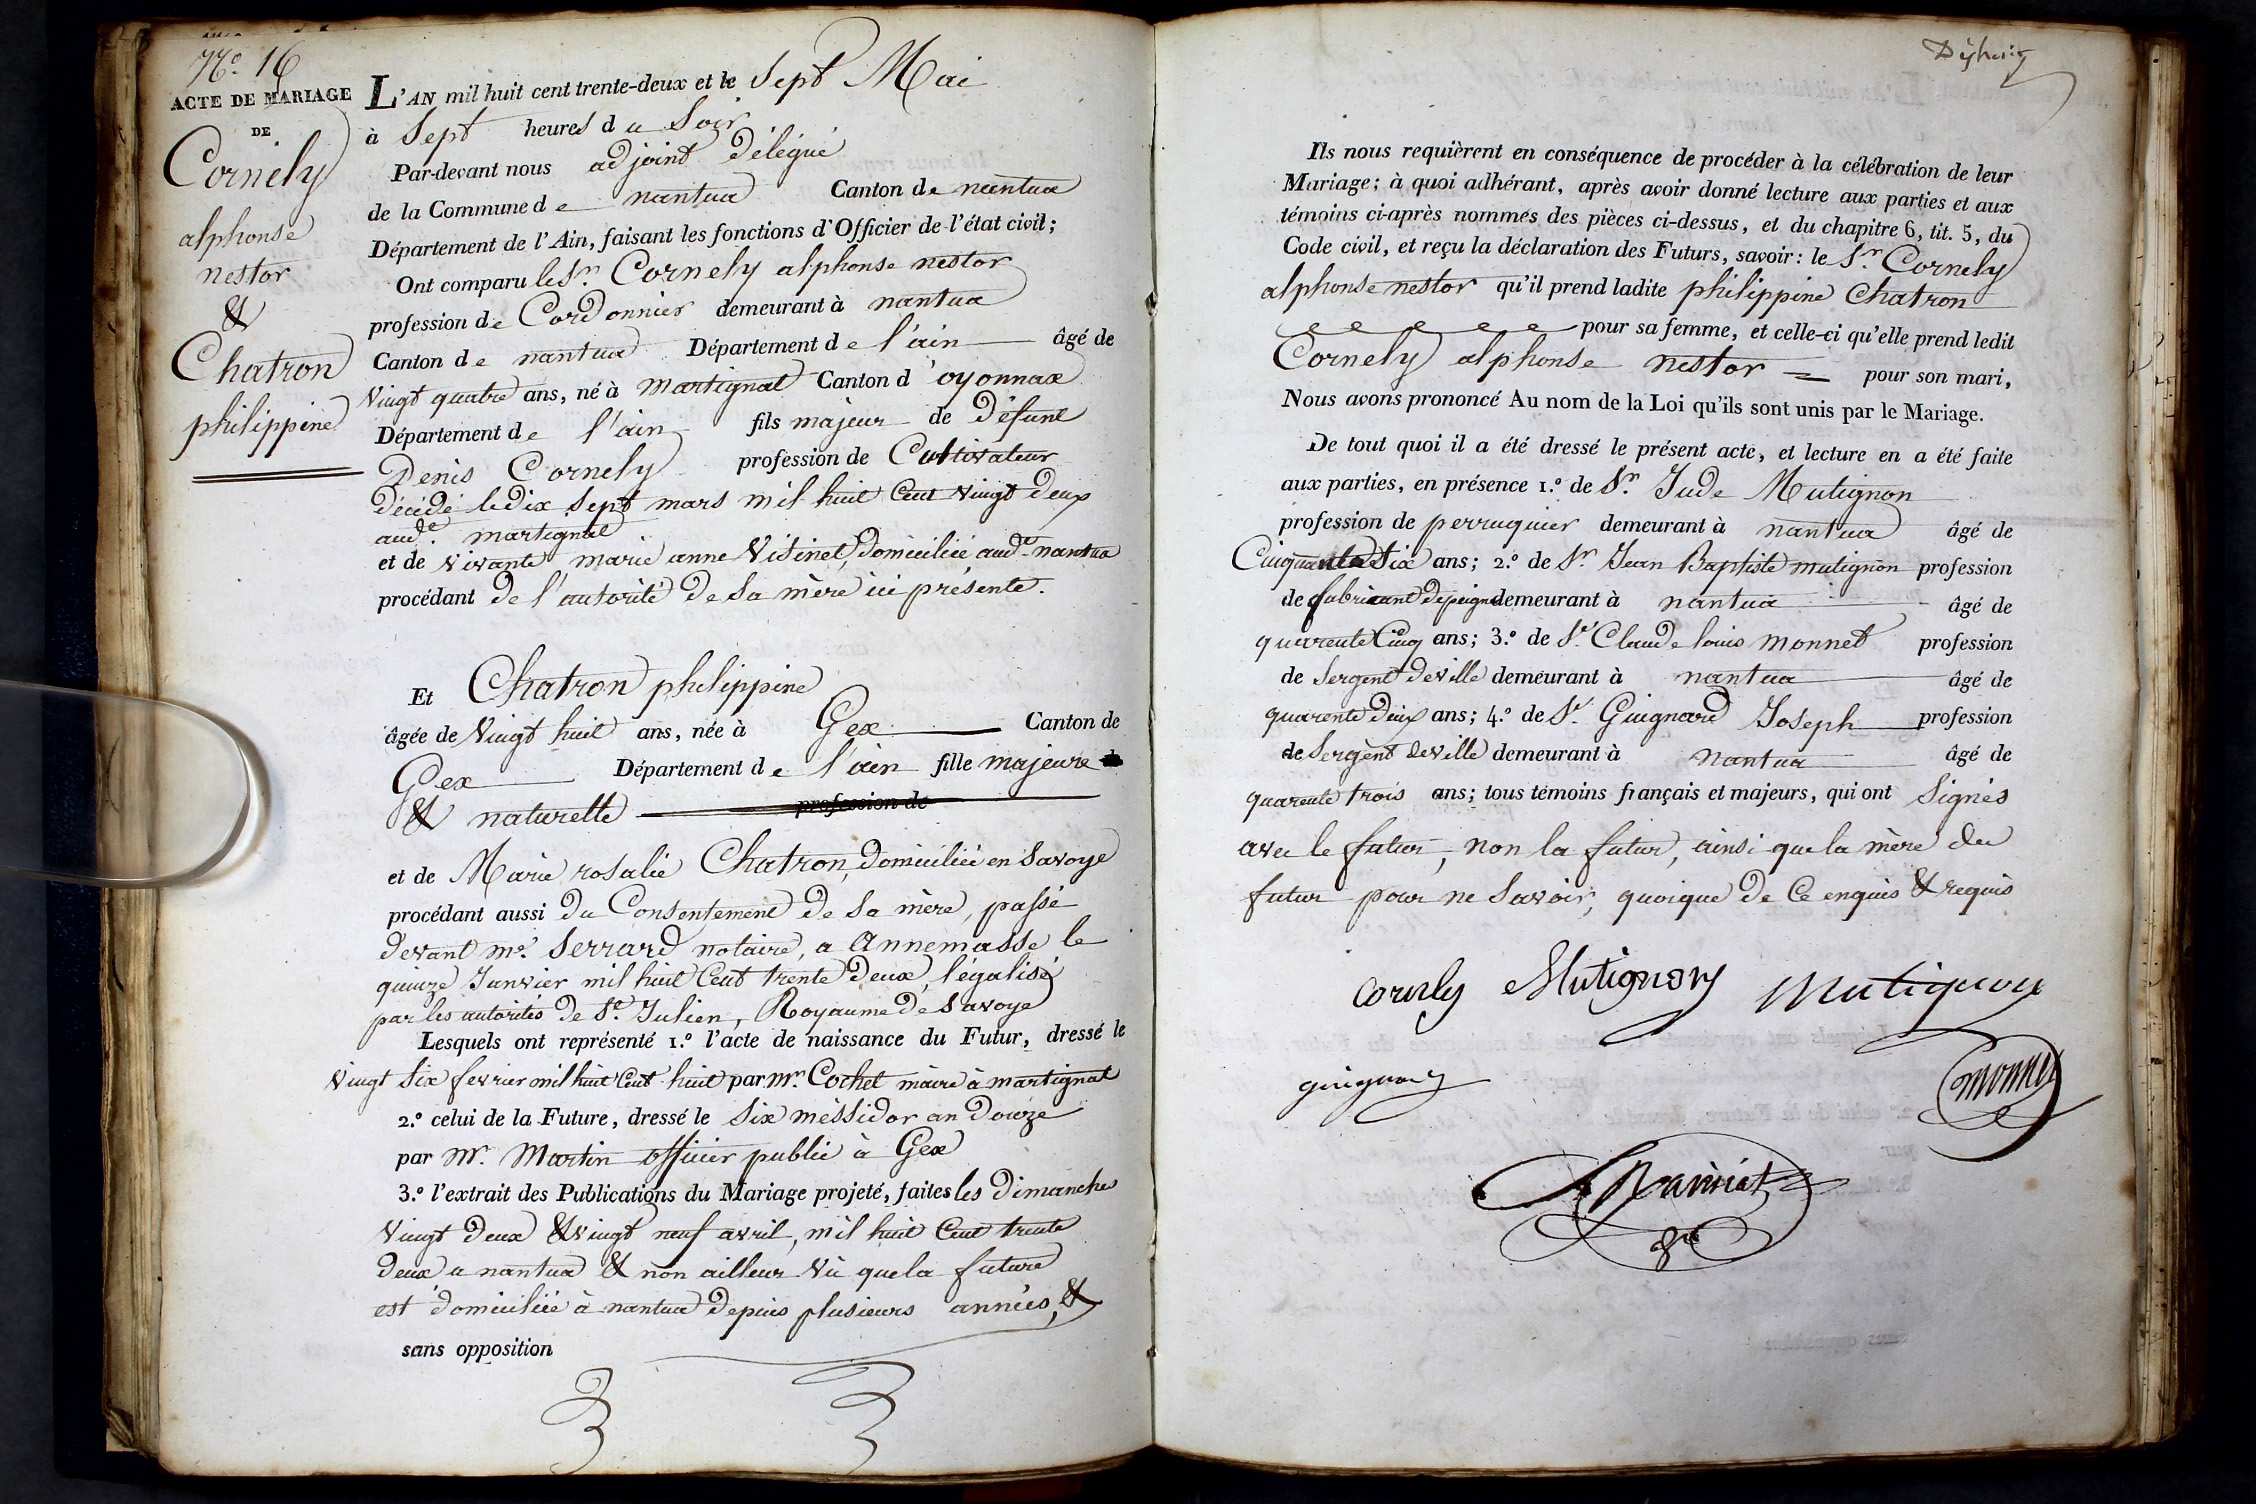 N.º 16
ACTE DE MARIAGE
DE
Cornely
alphonse
nestor
&
Chatron
philippine
L'AN mil huit cent trente-deux et le Sept Mai
à Sept heures du Soir
Par-devant nous adjoint délégué
de la Commune de nantua Canton de nantua
Département de l'Ain, faisant les fonctions d'Officier de l'état civil;
Ont comparu le Sr. Cornely alphonse nestor
profession de Cordonnier demeurant à nantua
Canton de nantua Département de l'ain âgé de
Vingt quatre ans, né à martignat Canton d'oyonnax
Département de l'ain fils majeur de défunt
Denis Cornely profession de Cultivateur
décédé le dix Sept mars mil huit Cent vingt deux
aud.t martignat
et de vivante marie anne Visinet, domiciliée aud.t nantua
procédant de l'autorité de Sa mère ici présente.
Et Chatron philippine
âgée de Vingt huit ans, née à Gex Canton de
Gex Département de l'ain fille majeure
& naturelle profession de
et de Marie rosalie Chatron, domiciliée en Savoye
procédant aussi du Consentement de Sa mère, passé
devant me. Serrard notaire, a Annemasse le
quinze Janvier mil huit Cent trente deux, légalisé
par les autorités de St. Julien, Royaume de Savoye
Lesquels ont représenté 1.º l'acte de naissance du Futur, dressé le
Vingt Six fevrier mil huit Cent huit par mr. Cochet maire à martignat
2.º celui de la Future, dressé le Six méssidor an douze
par mr. Martin officier public à Gex
3.º l'extrait des Publications du Mariage projeté, faites les dimanches
Vingt deux & vingt neuf avril, mil huit Cent trente
deux a nantua & non ailleur vù que la future
est domiciliée à nantua depuis plusieurs années, &
sans opposition
Ils nous requièrent en conséquence de procéder à la célébration de leur
Mariage; à quoi adhérant, après avoir donné lecture aux parties et aux
témoins ci-après nommés des pièces ci-dessus, et du chapitre 6, tit. 5, du
Code civil, et reçu la déclaration des Futurs, savoir: le Sr. Cornely
alphonse nestor qu'il prend ladite philippine Chatron
pour sa femme, et celle-ci qu'elle prend ledit
Cornely alphonse nestor pour son mari,
Nous avons prononcé Au nom de la Loi qu'ils sont unis par le Mariage.
De tout quoi il a été dressé le présent acte, et lecture en a été faite
aux parties, en présence 1.º de Sr. Jude Mutignon
profession de perruquier demeurant à nantua âgé de
Cinquante Six ans; 2.º de Sr. Jean Baptiste mutignon profession
de fabricant de peigne demeurant à nantua âgé de
quarente Cinq ans; 3.º de Sr. Claude louis monnet profession
de Sergent de ville demeurant à nantua âgé de
quarente deux ans; 4.º de Sr. Guignard Joseph profession
de Sergent de ville demeurant à nantua âgé de
quarente trois ans; tous témoins français et majeurs, qui ont Signés
avec le futur, non la futur, ainsi que la mère du
futur pour ne Savoir, quoique de Ce enquis & requis
cornely Mutignon Mutignon
guignard
monnet